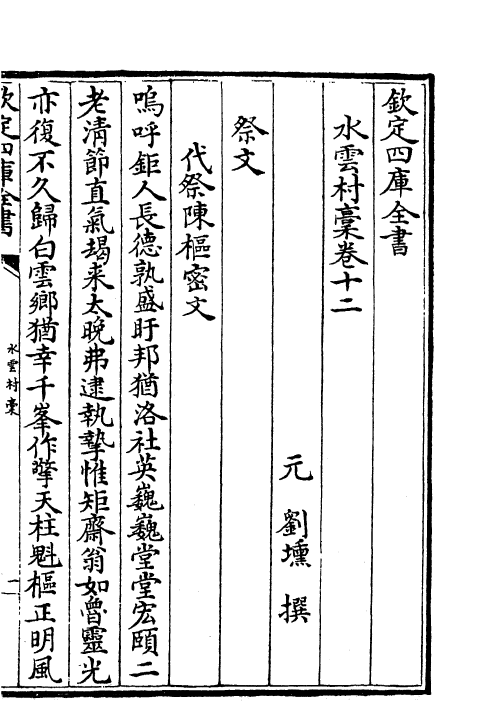 欽定四庫全書
水雲村藁卷十二
元 劉壎 撰
祭文
代祭陳樞密文
嗚呼鉅人長德孰盛盱邦猶洛社英巍巍堂堂宏頤二
老清節直氣朅来太晚弗逮執摯惟矩齋翁如魯靈光
亦復不久歸白雲鄉猶幸千峯作擎天柱魁樞正明風
欽定四庫全書
水雲村藁
一